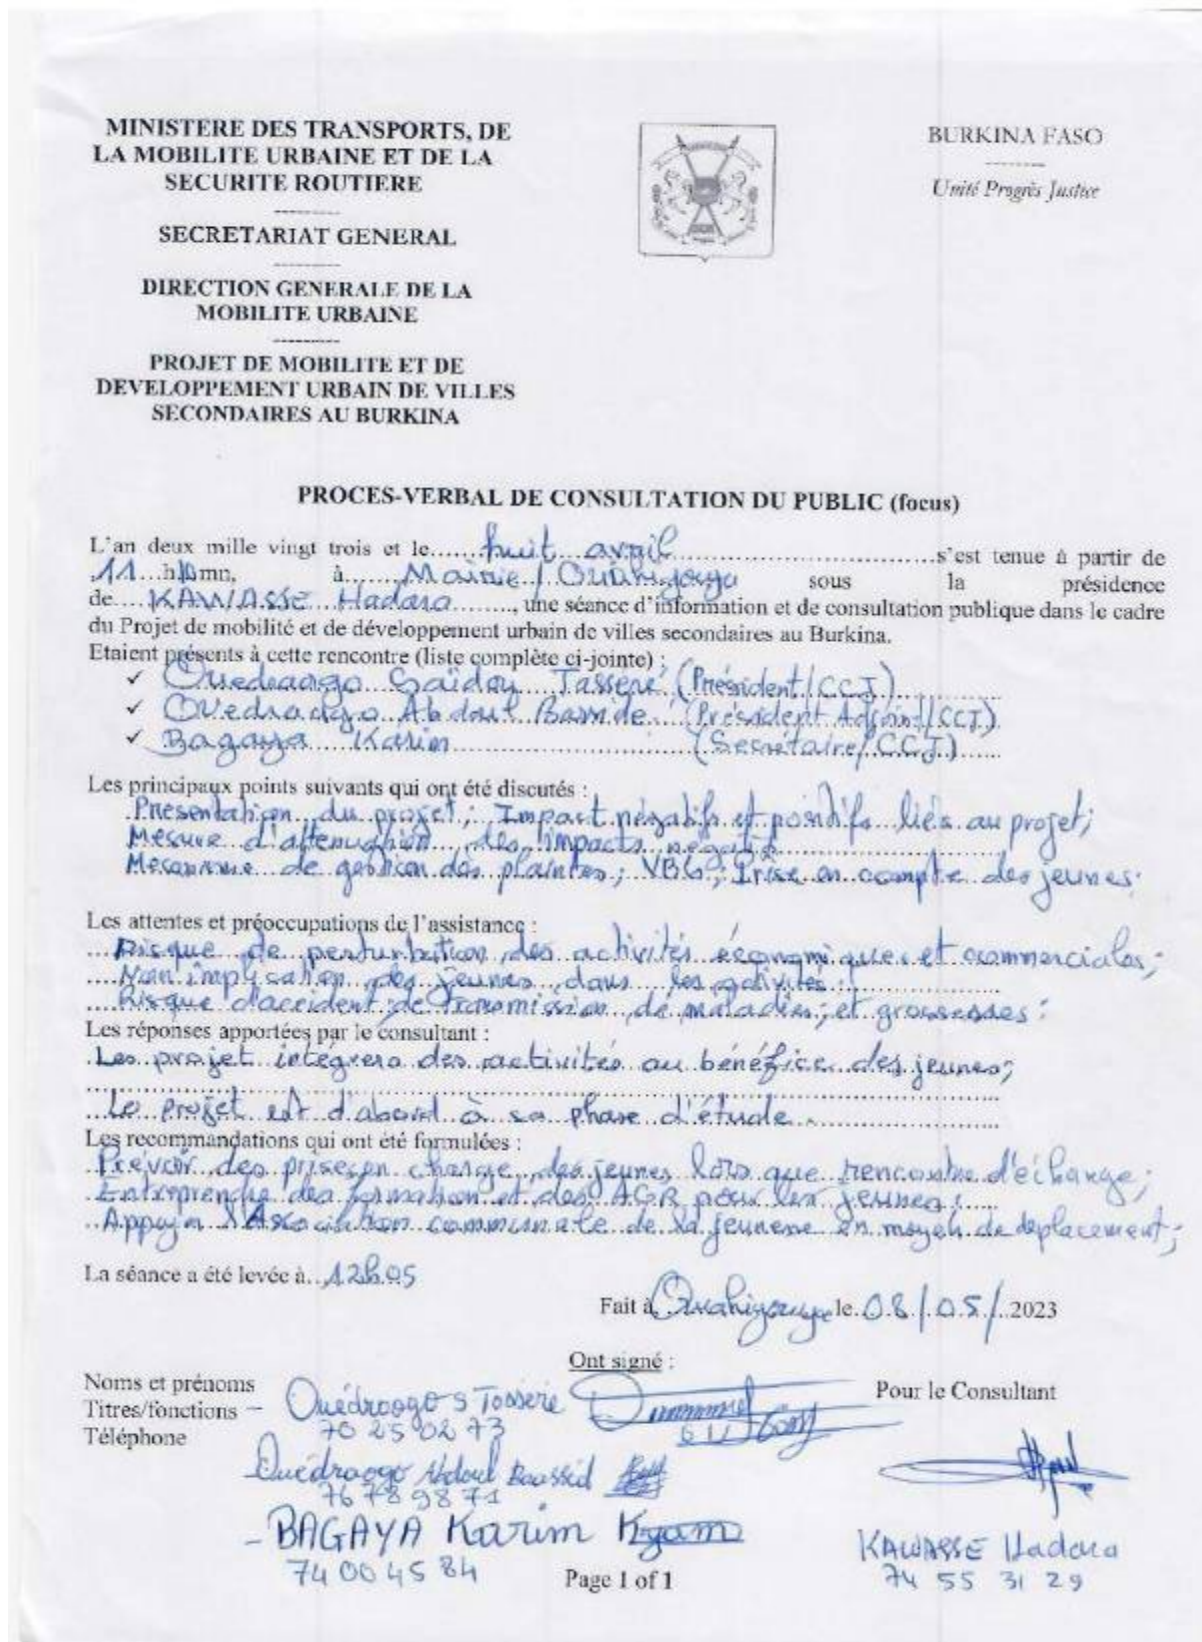 MINISTERE DES TRANSPORTS, DE
LA MOBILITE URBAINE ET DE LA
SECURITE ROUTIERE
----------
SECRETARIAT GENERAL
----------
DIRECTION GENERALE DE LA
MOBILITE URBAINE
----------
PROJET DE MOBILITE ET DE
DEVELOPPEMENT URBAIN DE VILLES
SECONDAIRES AU BURKINA
BURKINA FASO
----------
Unité Progrès Justice
PROCES-VERBAL DE CONSULTATION DU PUBLIC (focus)
L'an deux mille vingt trois et le huit avril s'est tenue à partir de
11 h mn, à Mairie / sous la présidence
de KAWASSE Hadara, une séance d'information et de consultation publique dans le cadre
du Projet de mobilité et de développement urbain de villes secondaires au Burkina.
Etaient présents à cette rencontre (liste complète ci-jointe) :
✓ Ouedraogo Saïdou Tasseré (Président/CCJ)
✓ Ouedraogo Abdoul Basside (Président Adjoint/CCJ)
✓ Bagaya Karim (Secrétaire/CCJ)
Les principaux points suivants qui ont été discutés :
Présentation du projet ; Impact négatifs et positifs liés au projet ;
Mesure d'attenuation des impacts négatifs
Mécanisme de gestion des plaintes ; VBG ; Prise en compte des jeunes.
Les attentes et préoccupations de l'assistance :
Risque de perturbation des activités économiques et commerciales ;
Non implication des jeunes dans les activités ;
Risque d'accident de transmission de maladies, et grossesses ;
Les réponses apportées par le consultant :
Les projet intégrera des activités au bénéfice des jeunes ;
Le projet est d'abord à sa phase d'étude.
Les recommandations qui ont été formulées :
Prévoir des prise en charge des jeunes lors que rencontre d'échange ;
Entreprendre des formation et des AGR pour les jeunes ;
Appuyer l'Association communale de la jeunesse en moyen de deplacement ;
La séance a été levée à 12h05
Fait à Ouahigouya le 08/05/2023
Ont signé :
Noms et prénoms
Titres/fonctions –
Téléphone
Ouédraogo S Tasséré
70 25 02 73
Ouédraogo Abdoul Baassid
76 78 98 71
- BAGAYA Karim
74 00 45 84
Pour le Consultant
KAWASSE Hadara
74 55 31 29
Page 1 of 1